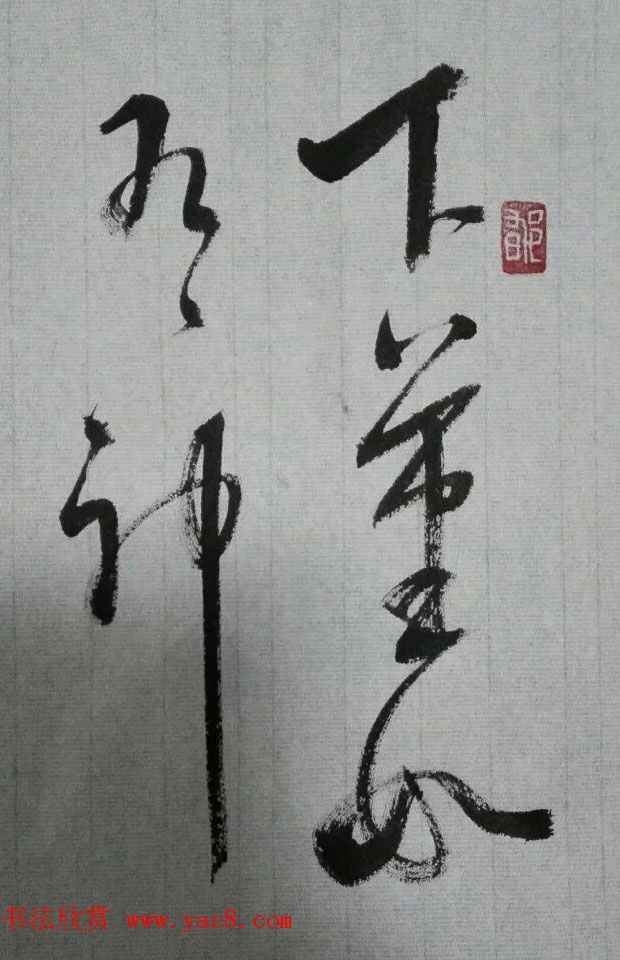 下筆如
有神
书法欣赏 www.yac8.com